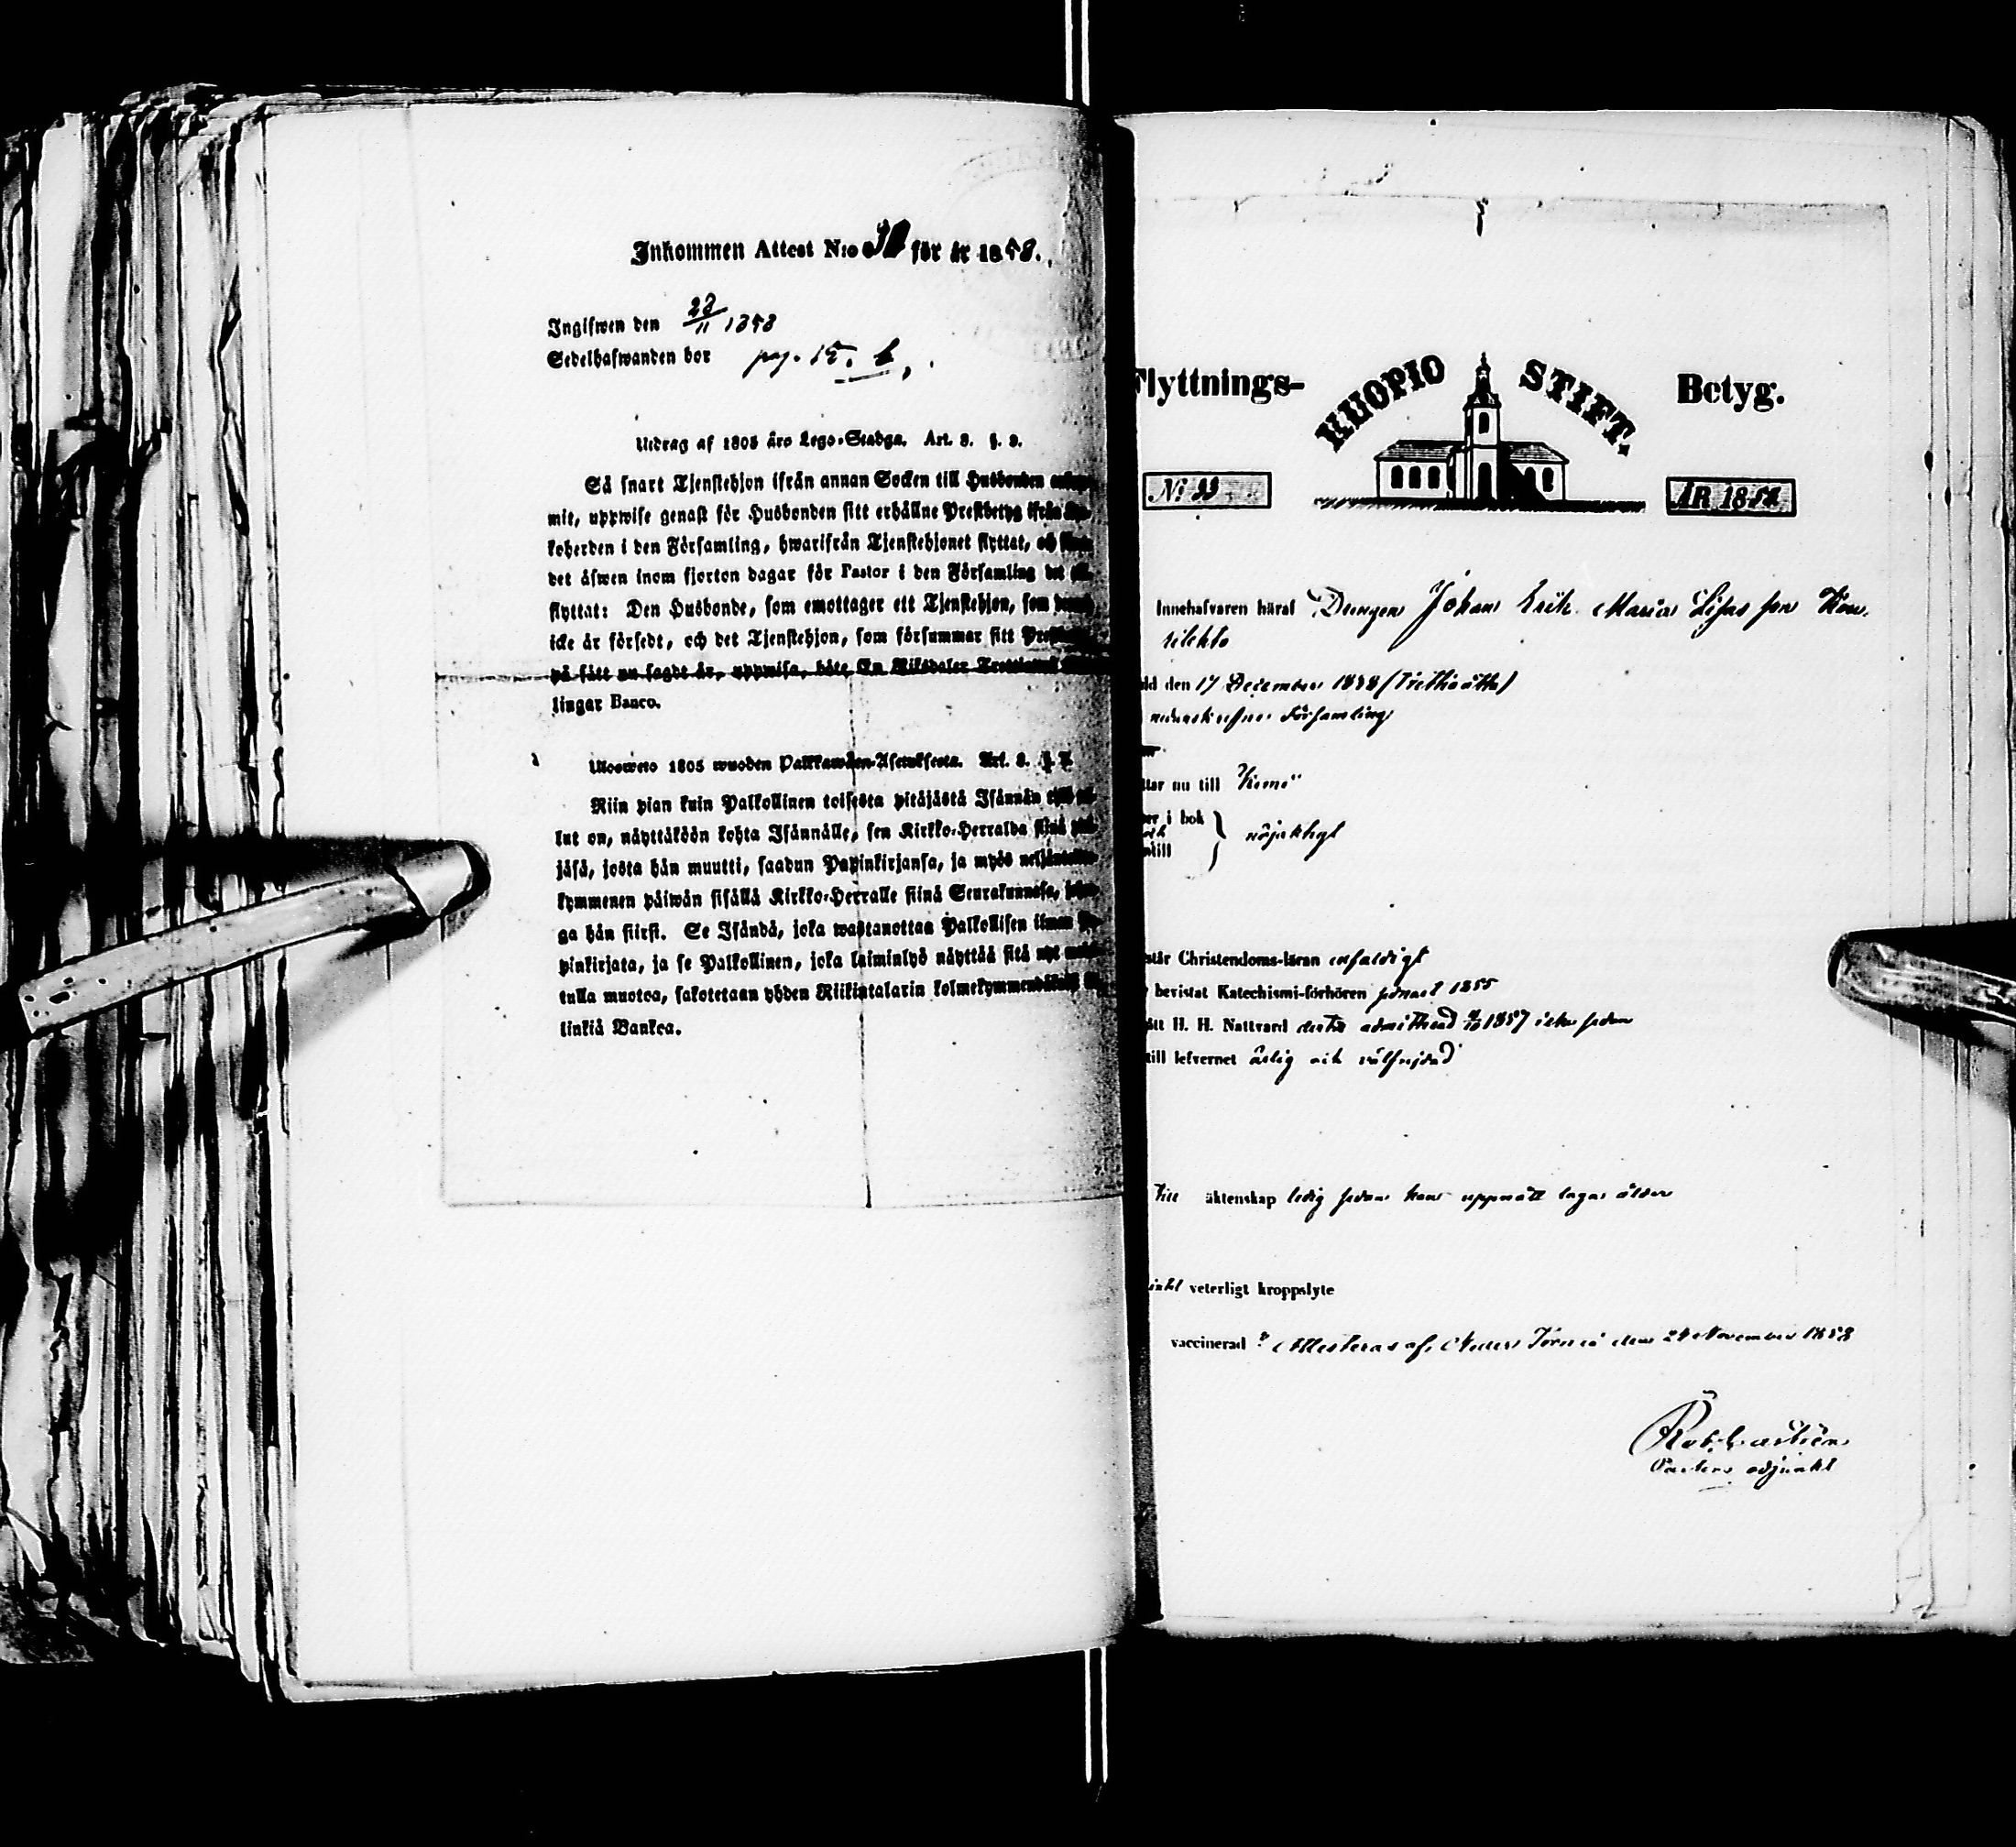 Inkommen Attest N:o för år 1858.
Inglfwen den 28/11 1858
Sedelhafwanden bor pag. 15. b.
Utdrag af 1805 års Lego-Stadga. Art. 8. §. 9.
Så snart Tjenstehjon ifrån annan Socken till Husbonden
mit, uppwise genast för Husbonden sitt erhållne Prestbetyg ifrån
koherden i den Församling, hwarifrån Tjenstehjonet flyttat, och
det äfwen inom fjorton dagar för Pastor i den Församling det
flyttat: Den Husbonde, som emottager ett Tjenstehjon, som
icke är försedt, och det Tjenstehjon, som försummar sitt
på sätt nu sagdt är, uppwisa, böte En Riksdaler
lingar Banco.
Ulosweto 1805 wuoden Palkkawäen-Asetuksesta. Art. 8. §.
Niin pian kuin Palkollinen toisesta pitäjästä Isännän
lut on, näyttäköön kohta Isännälle, sen Kirkko-Herralda siinä
jäsä, josta hän muutti, saadun Papinkirjansa, ja myös
kymmenen päiwän sisällä Kirkko-Herralle siinä Seurakunnasa,
ga hän siirsi. Se Isändä, joka wastanottaa Palkollisen ilman
pinkirjata, ja se Palkollinen, joka laiminlyö näyttää sitä nyt
tulla muotoa, sakotetaan yhden Riikintalarin
linkiä Bankoa.
Flyttnings- KUOPIO STIFT. Betyg.
N:o 99 ÅR 1858
Innehafvaren häraf Drengen Johan Erik Maria Lisas son
den 17 December 1838 (Trettioåtta)
Församling
nu till Kemi
i bok
nöjaktigt
till
Christendoms-läran enfaldigt
bevistat Katechismi-förhören senast 1855
H. H. Nattvard admitterad 1857 icke sedan
till lefvernet ärlig och välfrejdad
Till äktenskap ledig sedan han uppnått laga ålder
veterligt kroppslyte
vaccinerad ? Attesteras af Neder Torneå den 24 November 1858
Pastors adjunkt